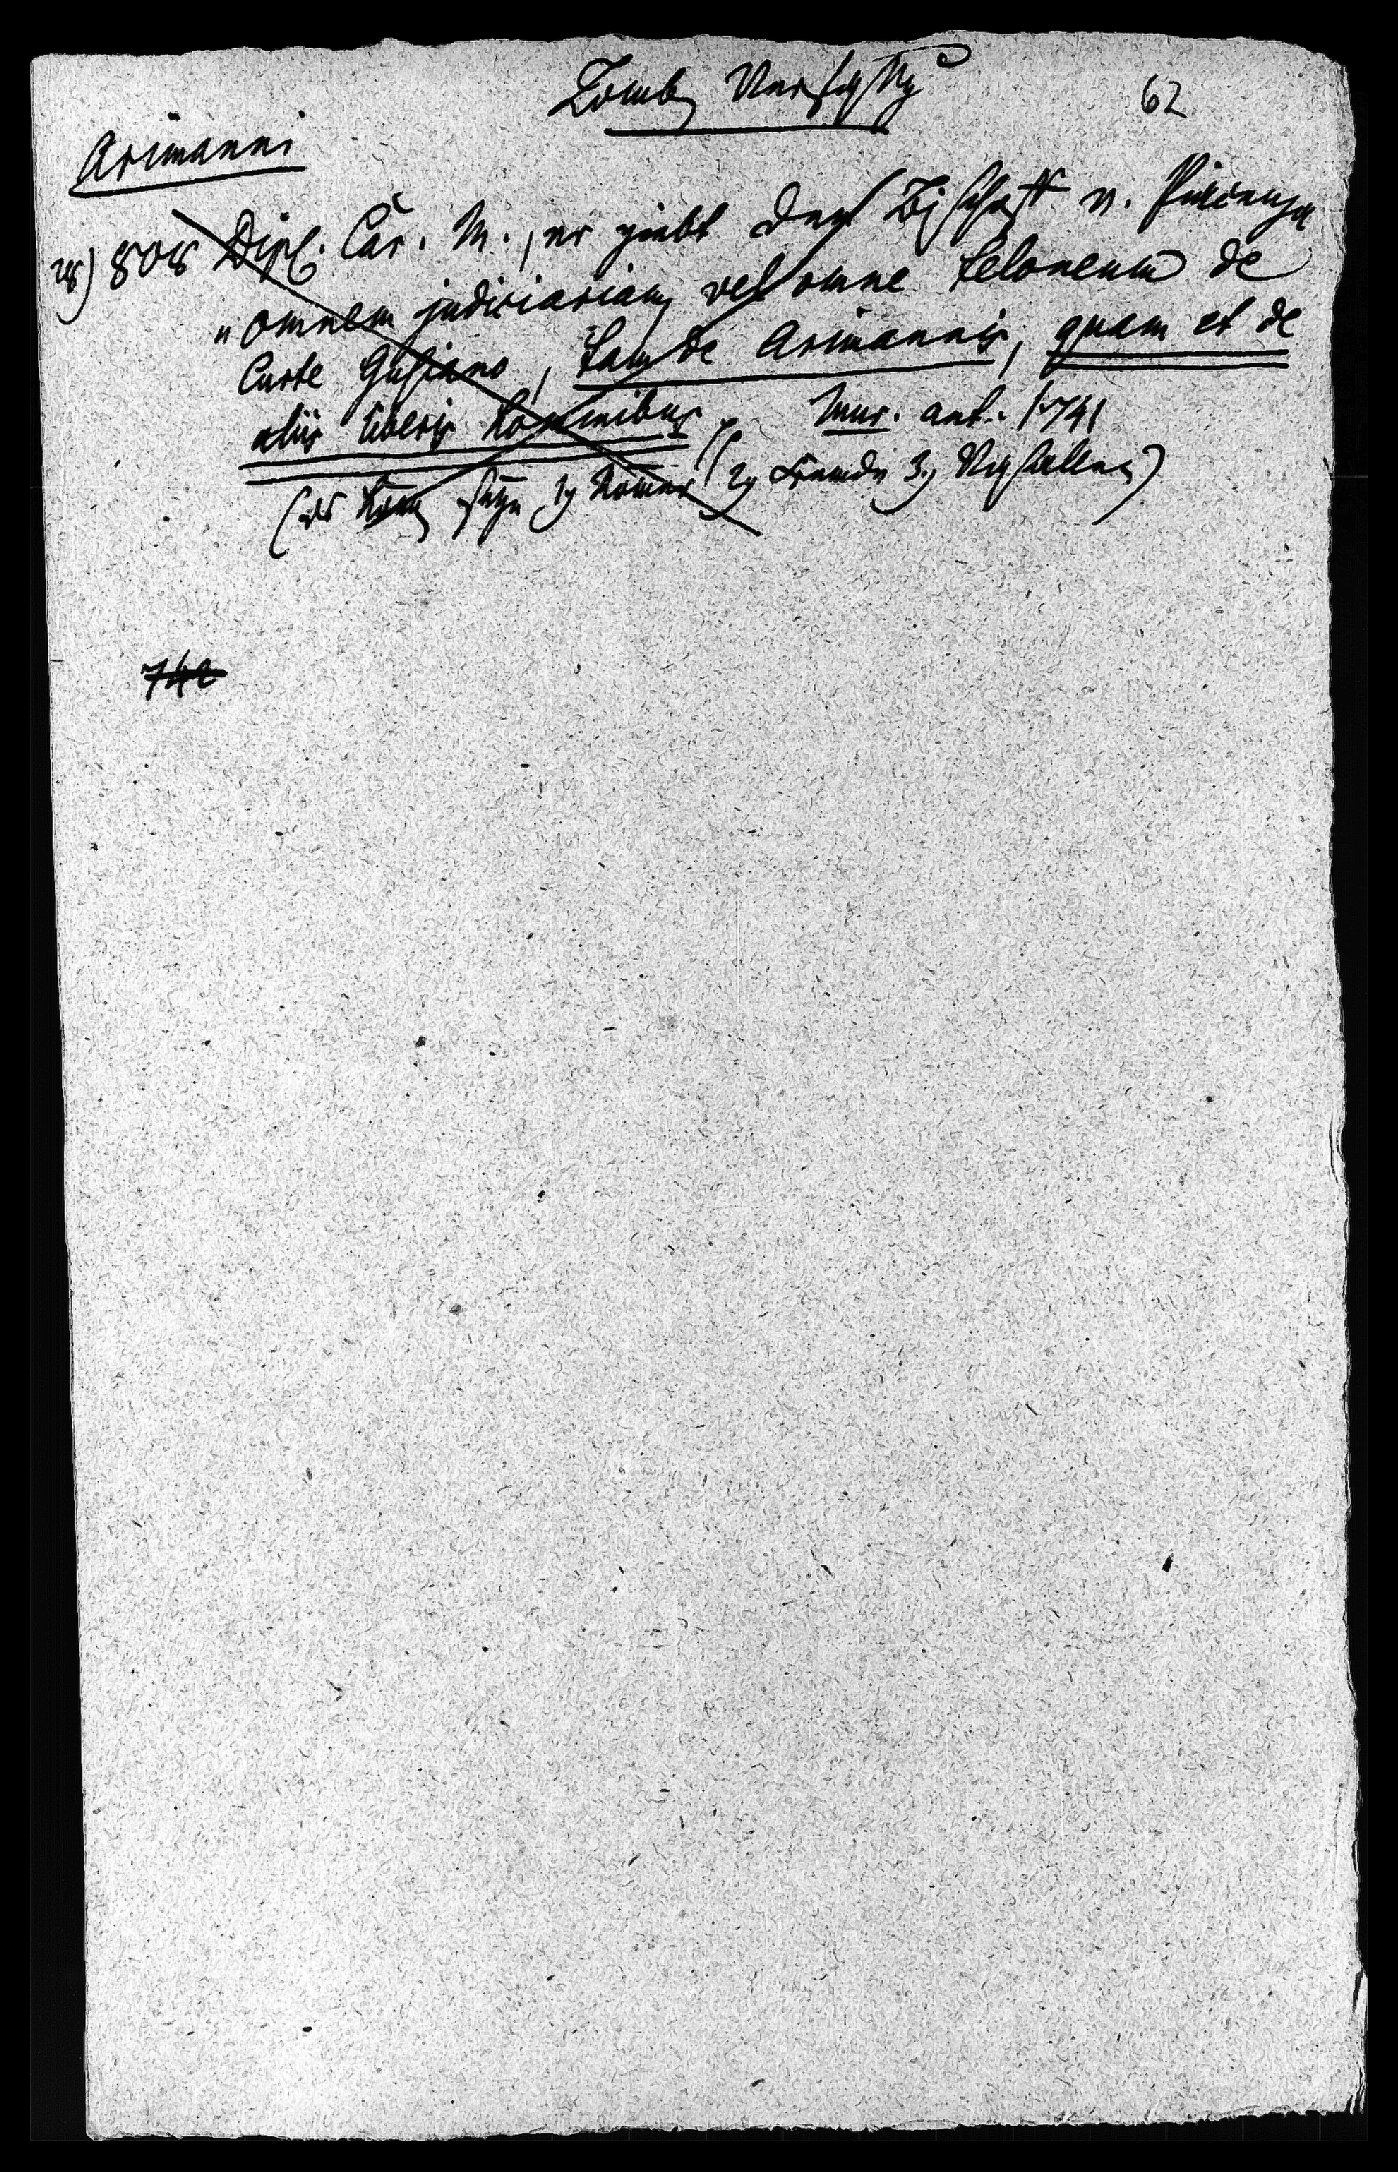 Lomb. Verfassg
62
Arimanni
28) 808 Dipl. Car. M., er giebt dem Bischoff v. Piacenza
"omnem judiciariam vel omne teloneum de
Curte Gusiano, tam de Arimannis, quam et de
aliis liberis hominibus" Mur. ant. I 741
(es kan seyn 1) Römer 2) Fremde 3)
742